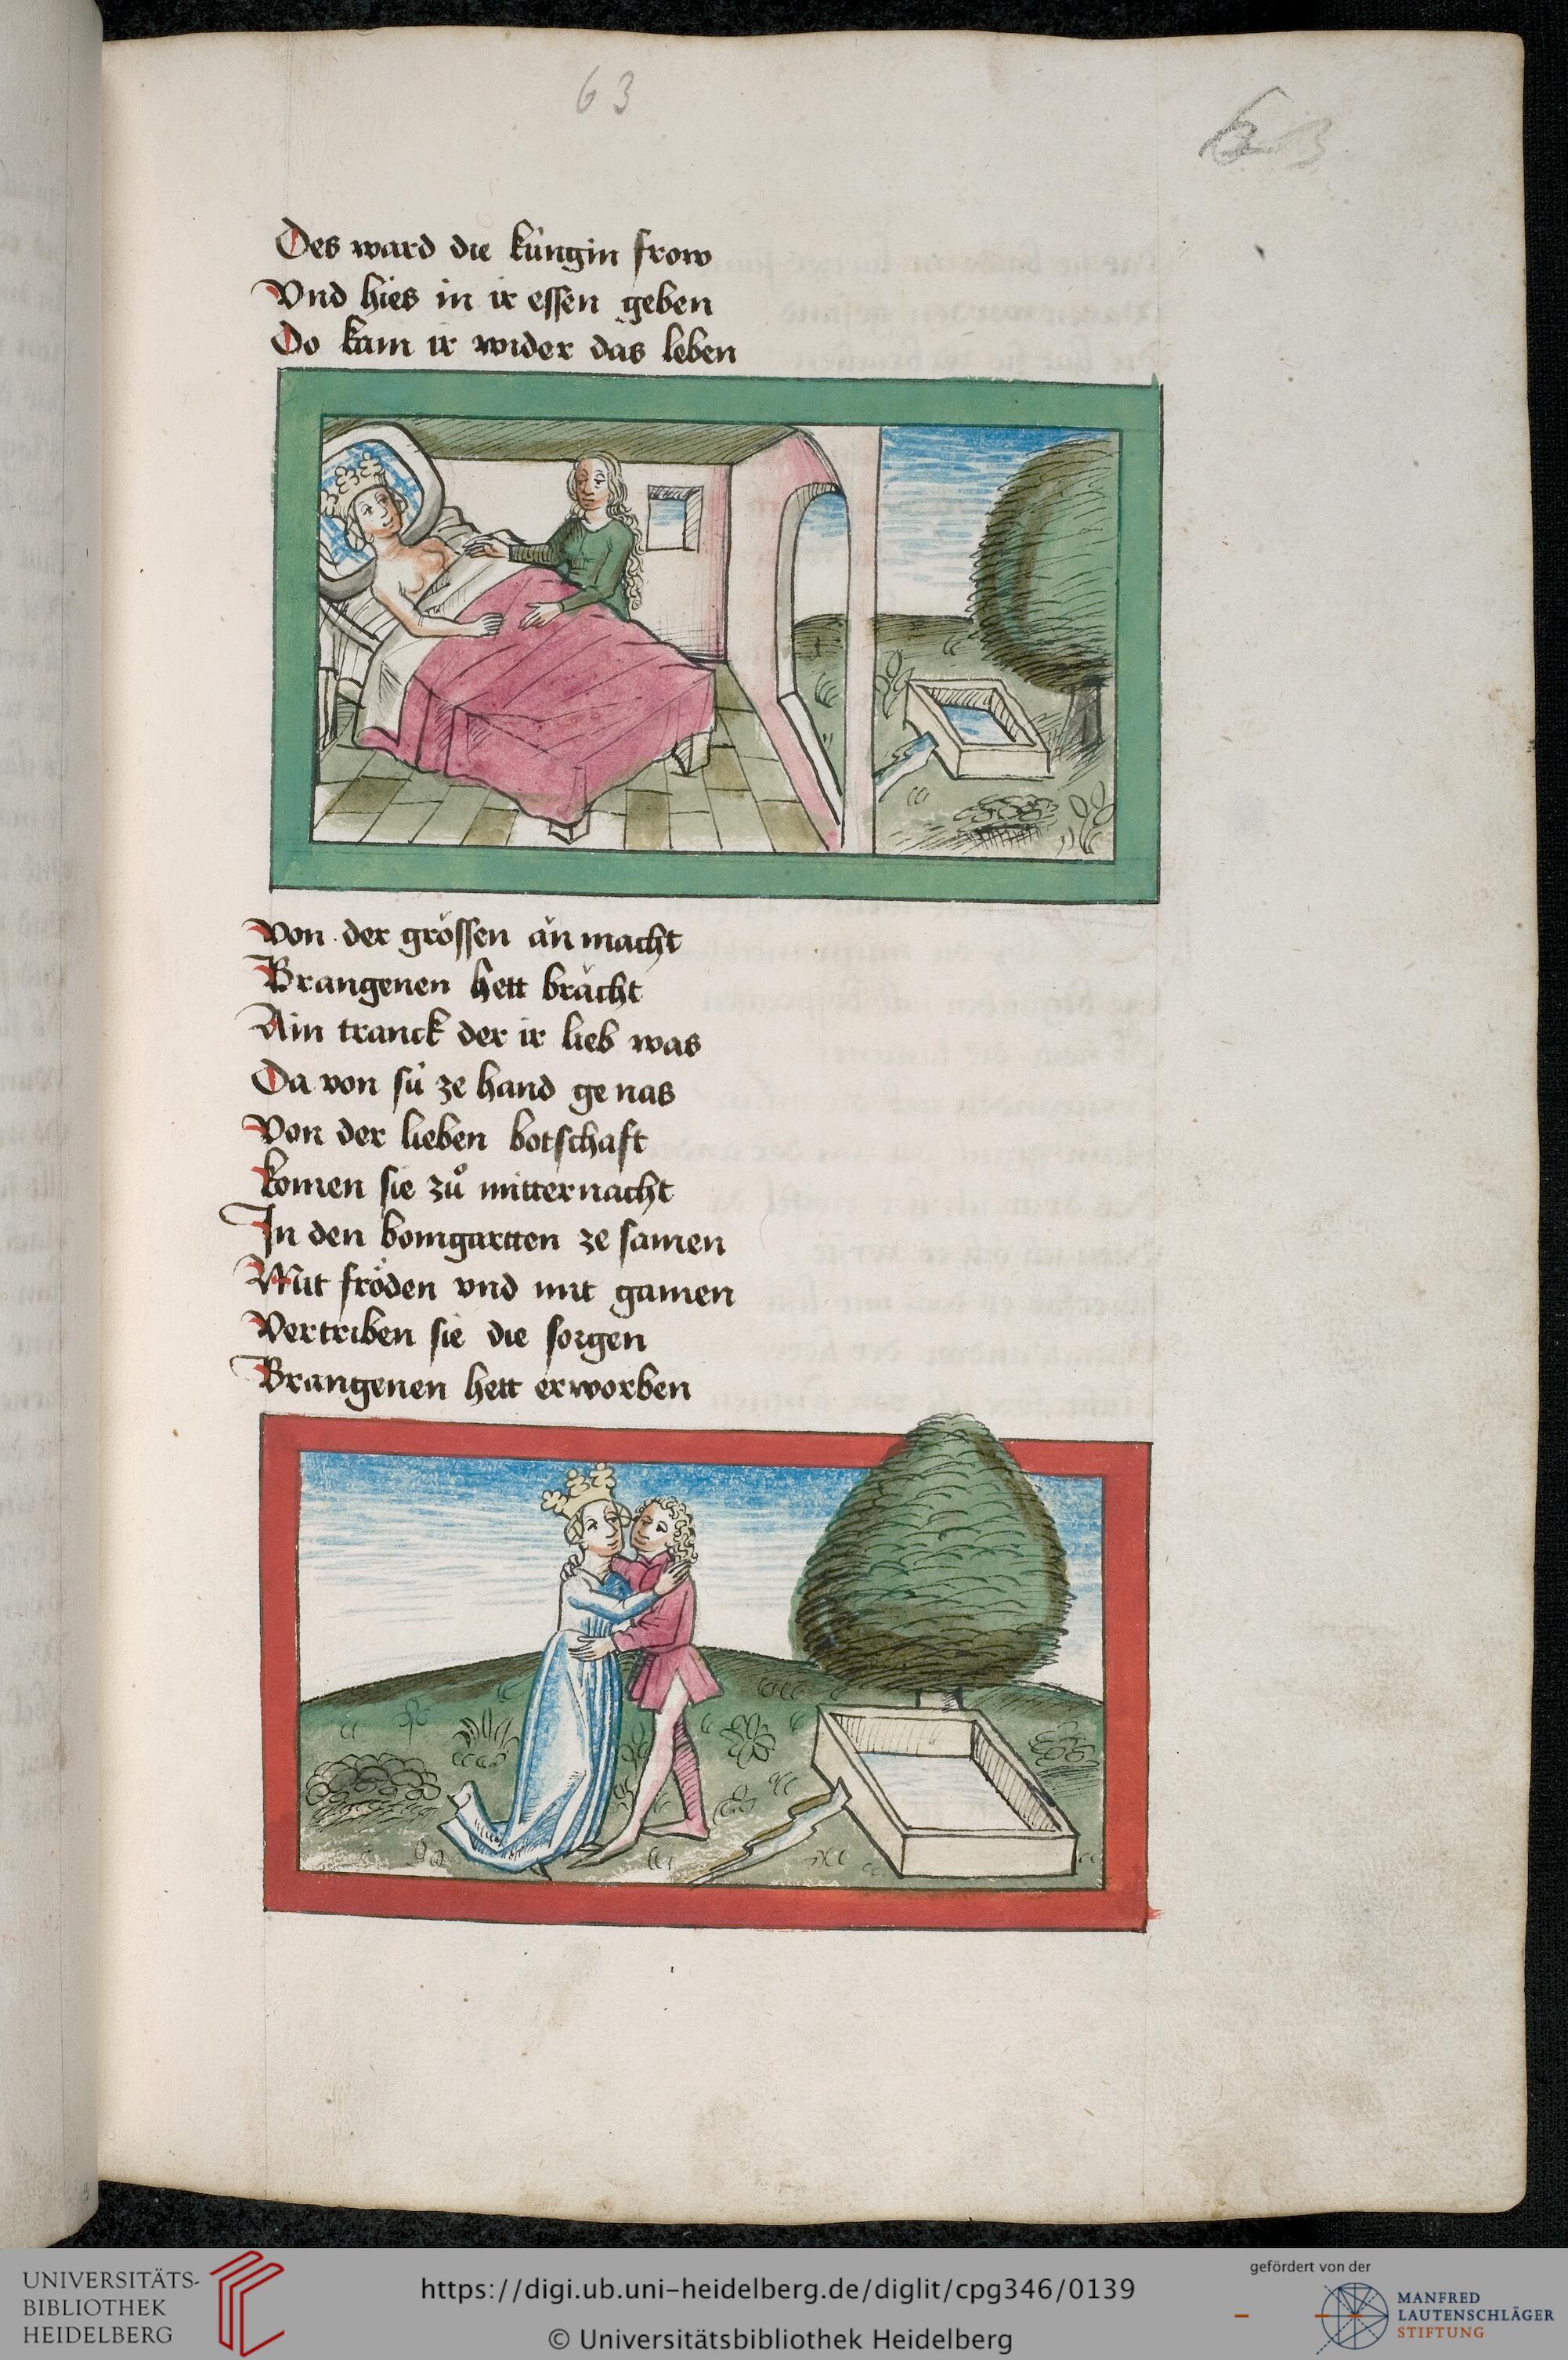 63
63
Des ward die kúngin frow
Vnd hies in ir essen geben
Do kam ir wider das leben
Von der grössen ǎn macht
Brangenen hett brǎcht
Ain tranck der ir lieb was
Da von sú ze hand ge nas
Von der lieben botschaft
komen sie zů mitternacht
In den bomgartten ze samen
Mit fröden vnd mit gamen
Vertriben sie die sorgen
Brangenen hett erworben
UNIVERSITÄTS-
BIBLIOTHEK
HEIDELBERG
https://digi.ub.uni-heidelberg.de/diglit/cpg346/0139
© Universitätsbibliothek Heidelberg
gefördert von der
MANFRED
LAUTENSCHLÄGER
STIFTUNG